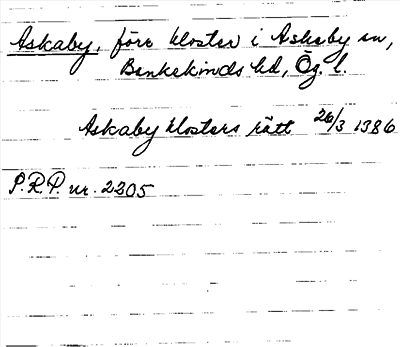 Askaby, förr kloster i Askeby sn,
Bankekinds hd, Ög. l.
Askaby klosters rätt 26/3 1386
P.R.P. nr. 2205